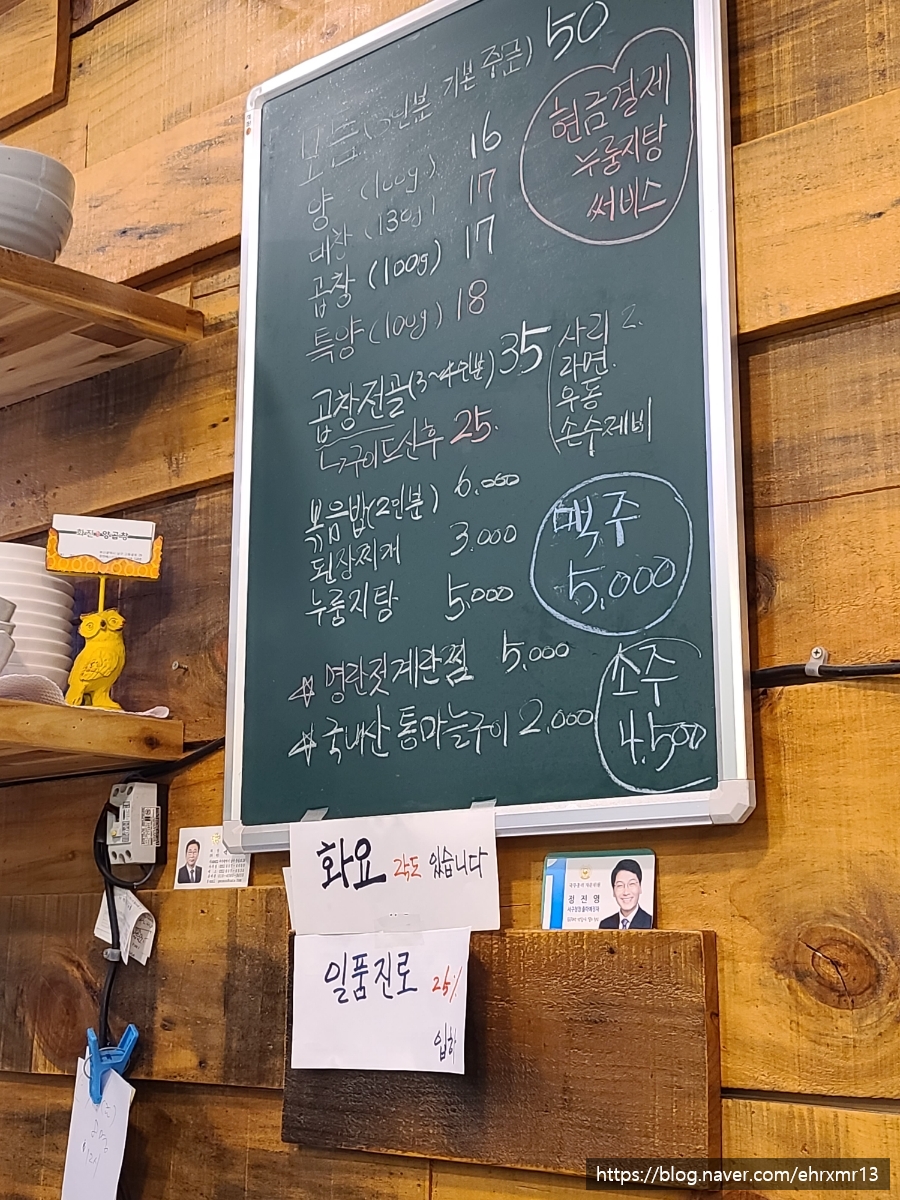 모듬 (3인분 기본 중근) 50
양 (100g) 16
대창 (130g) 17
곱창 (100g) 17
특양 (100g) 18
현금결제
누룽지탕
써비스
곱창전골 (3~4인분) 35
구이드신후 25.
사리 2.
라면.
우동
손수제비
볶음밥(2인분) 6.000
된장찌개 3.000
누룽지탕 5.000
명란젓계란찜 5.000
국내산 통마늘구이 2.000
맥주
5,000
소주
4,500
화요 각도 있습니다
일품진로 25%
입하
화진양곱창
정진영
https://blog.naver.com/ehrxmr13